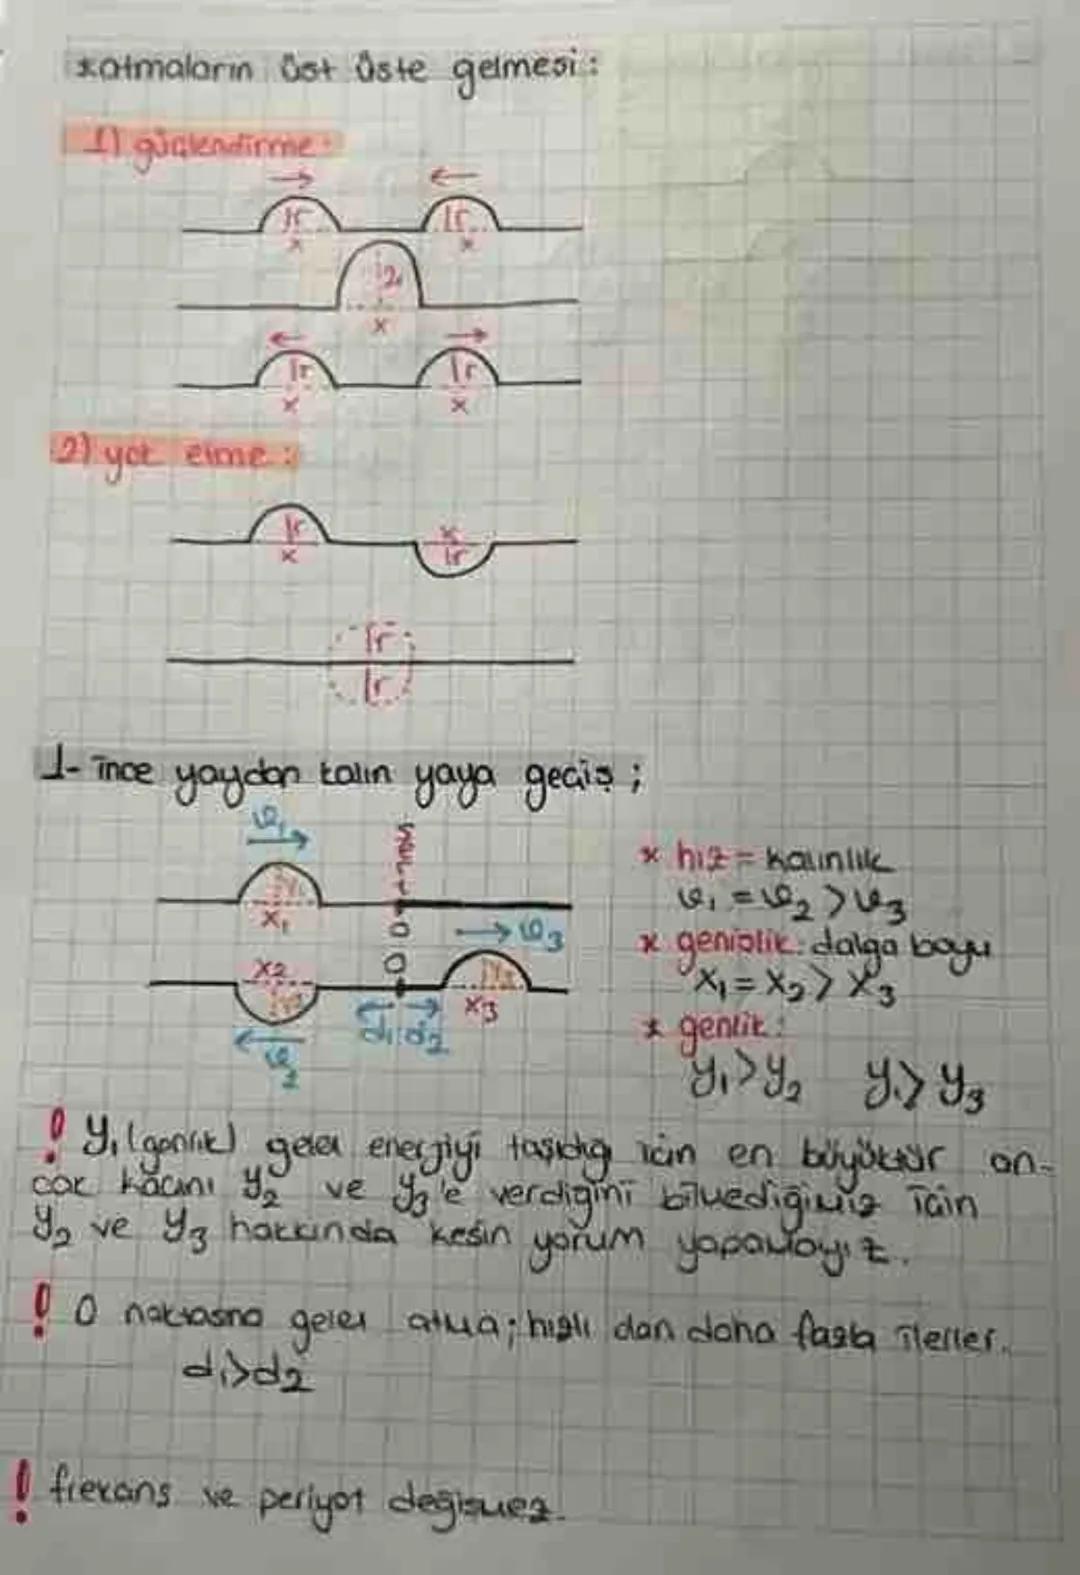 *atmaların üst üste gelmesi:
1) güçlendirme:
r r
x x
2r
x
r r
x x
2) yok etme:
r x
x r
r
r
1- ince yaydan kalın yaya geçiş;
v₁
x₁
* hız = kalınlık
v₁ = v₂ > v₃
O v₃
* genişlik: dalga boyu
x₂ O
x₁ = x₂ > x₃
d₁ d₂ x₃
* genlik:
v₂
y₁ > y₂ y₁ > y₃
! y₁ (genlik) gelen enerjiyi taşıdığı için en büyüktür an-
cak kaçını y₂ ve y₃'e verdiğini bilmediğimiz için
y₂ ve y₃ hakkında kesin yorum yapamayız.
! O noktasına gelen atma; hızlı dan daha fazla ilerler.
d₁>d₂
! frekans ve periyot değişmez.